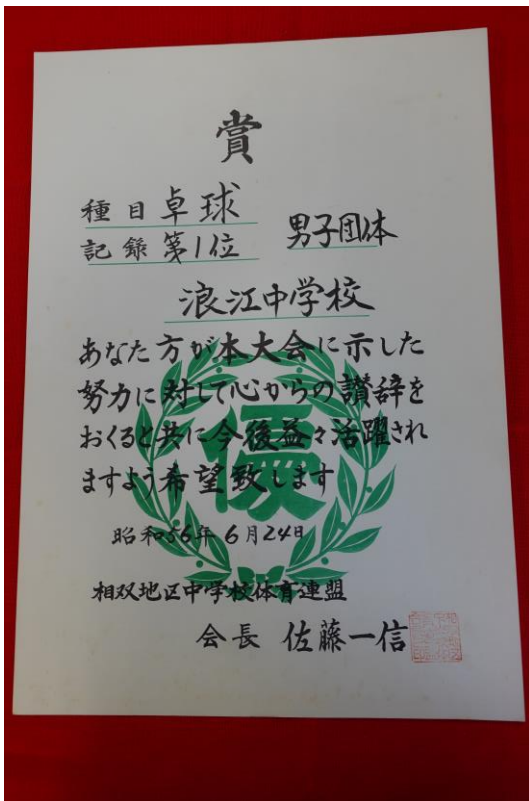 賞
種目 卓球
記録 第1位 男子団体
浪江中学校
あなた方が本大会に示した
努力に対して心からの讃辞を
おくると共に今後益々活躍され
ますよう希望致します
優
昭和56年6月24日
相双地区中学校体育連盟
会長 佐藤一信